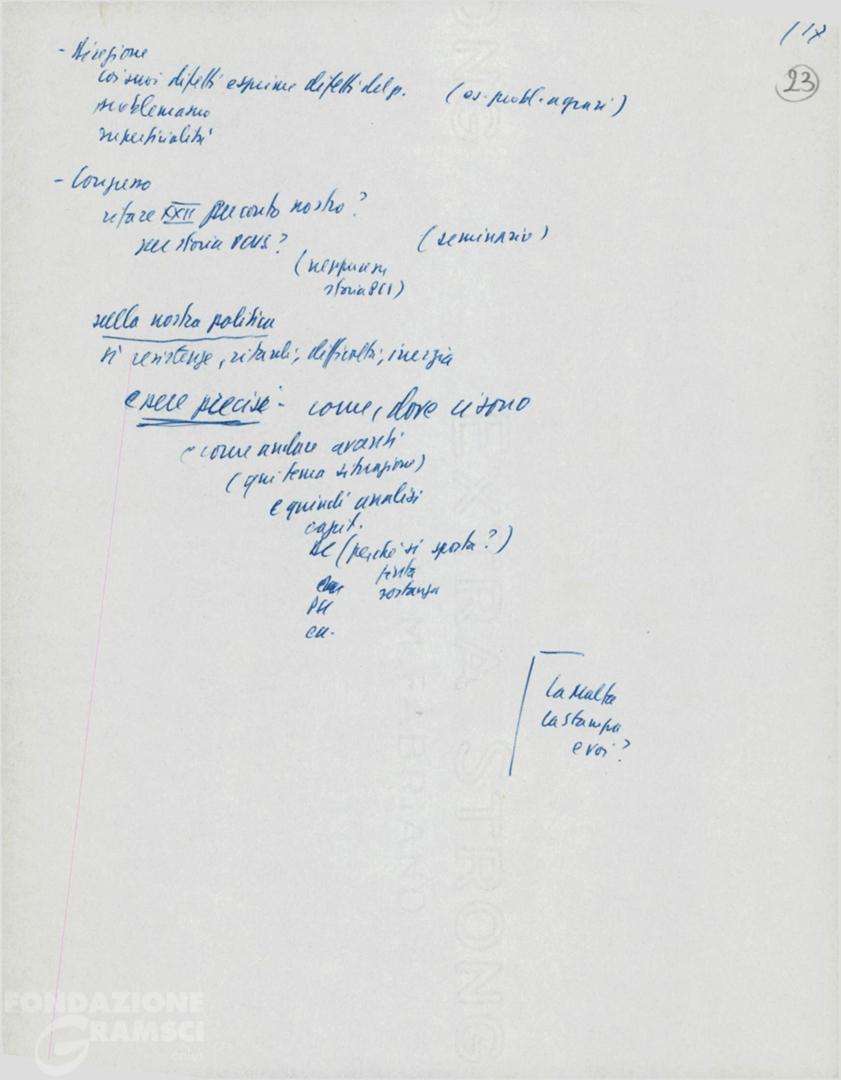 117
23
- Direzione
coi suoi difetti esprime difetti del p. (es. probl. agrari)
problemismo
superficialità
- Congresso
rifare XXII per conto nostro?
su storia PCUS? (seminario)
(neppure su
storia PCI)
sulla nostra politica
sì resistenze, ritardi, difficoltà, inerzia
essere precisi - come, dove ci sono
e come andare avanti
(qui tema situazione)
e quindi analisi
capit.
DC (perché si sposta?)
finta
sostanza
PSI
cu.
La Malfa
La Stampa
e voi?
EXTRA STRONG
FABRIANO
FONDAZIONE
GRAMSCI